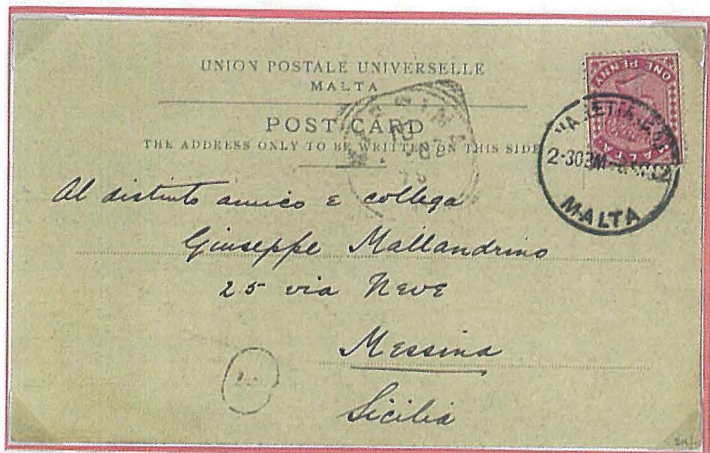 UNION POSTALE UNIVERSELLE
MALTA
POST CARD
THE ADDRESS ONLY TO BE WRITTEN ON THIS SIDE
ONE PENNY
MALTA
Al distinto amico e collega
Giuseppe Mallandrino
25 via Neve
Messina
Sicilia